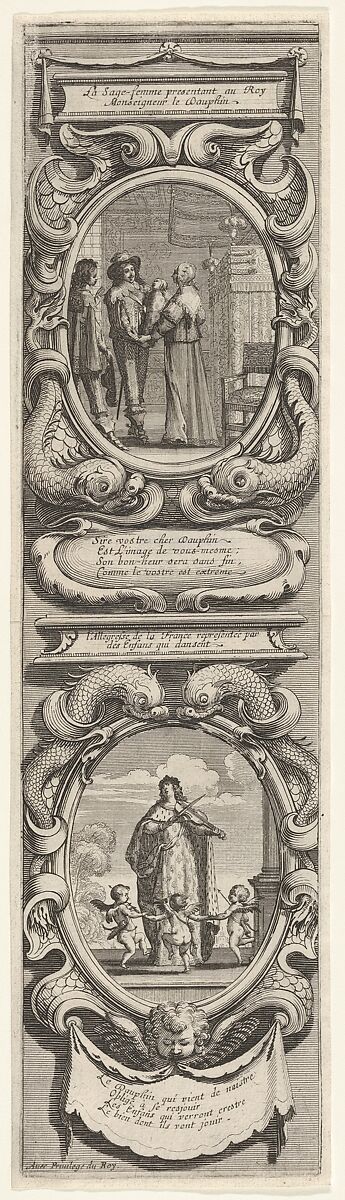 La Sage-femme presentant au Roy
Monseigneur le Dauphin
Sire vostre cher Dauphin
Est L'image de vous-mesme;
Son bon-heur sera sans fin,
Comme le vostre est extreme
l'Allegresse de la France representée par
des Enfans qui dansent
Le Dauphin qui vient de naistre
Oblige à se resjouir
Les Enfans qui verront crestre
Le bien dont ils vont jouir.
Avec Privilege du Roy